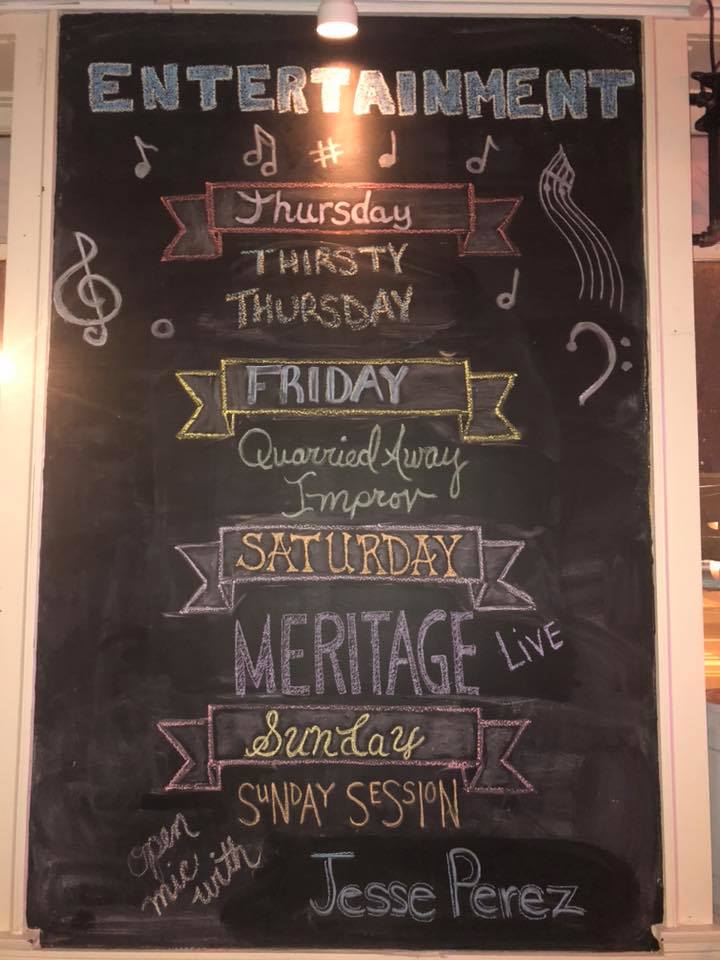 ENTERTAINMENT
#
Thursday
THIRSTY
THURSDAY
FRIDAY
Quarried Away
Improv
SATURDAY
MERITAGE LiVE
Sunday
SuNDAY SESSION
open
mic
with
Jesse Perez